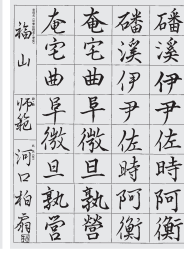 磻溪伊尹佐時阿衡
磻溪伊尹佐時阿衡
奄宅曲阜微旦孰營
奄宅曲阜微旦孰営
福山 师範 河口柏扇